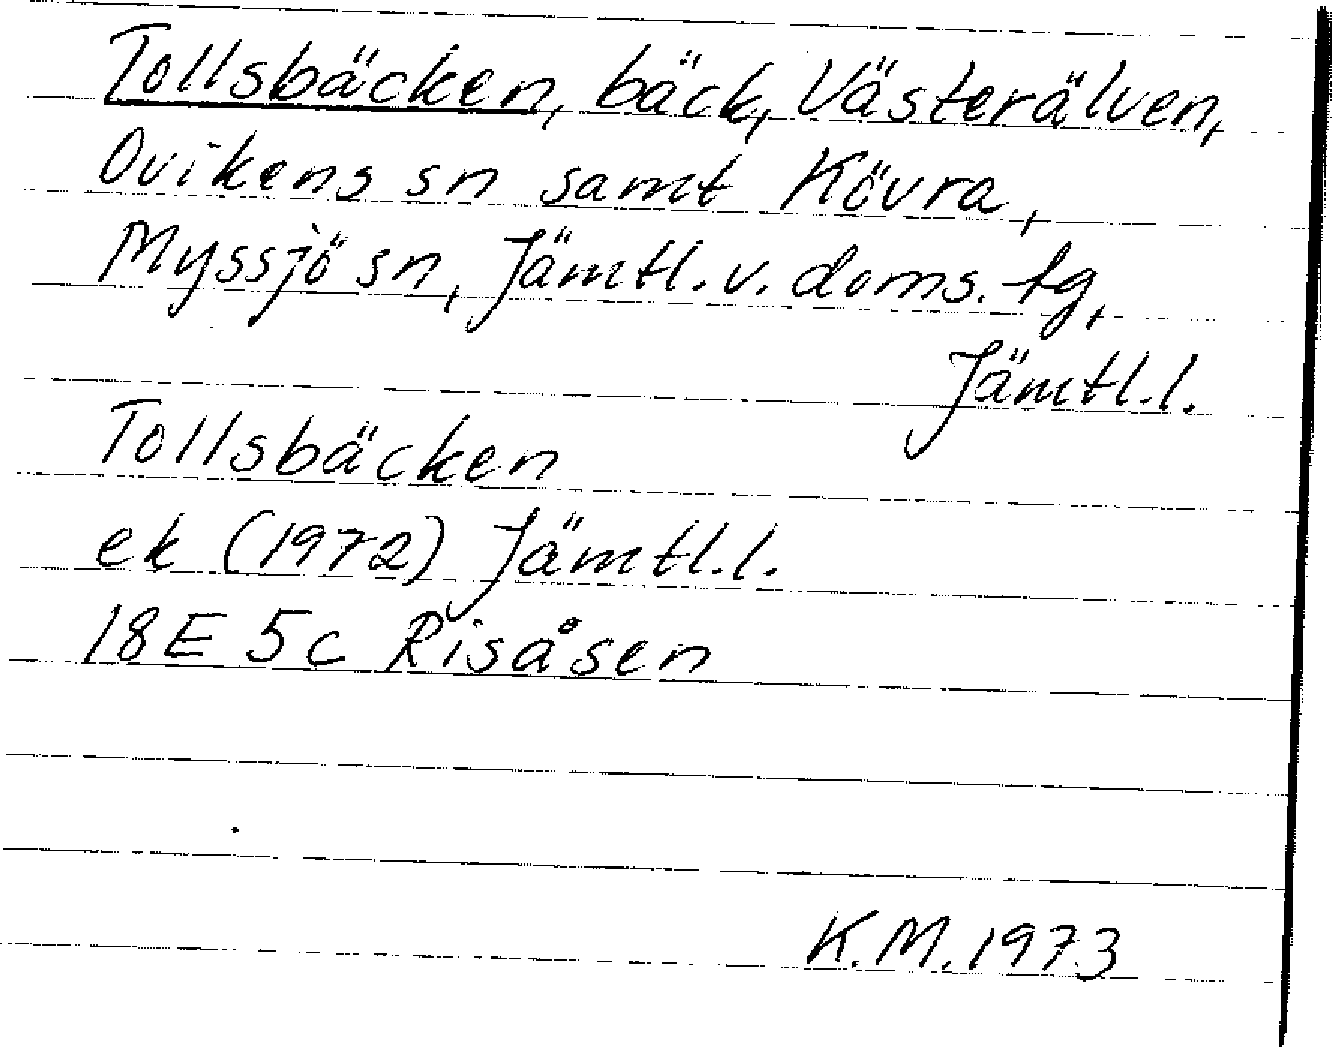 Tollsbäcken, bäck, Västerälven,
Ovikens sn samt Kövra,
Myssjö sn, Jämtl. v. doms. tg,
Jämtl. l.
Tollsbäcken
ek (1972) Jämtl. l.
18E 5c Risåsen
K.M. 1973